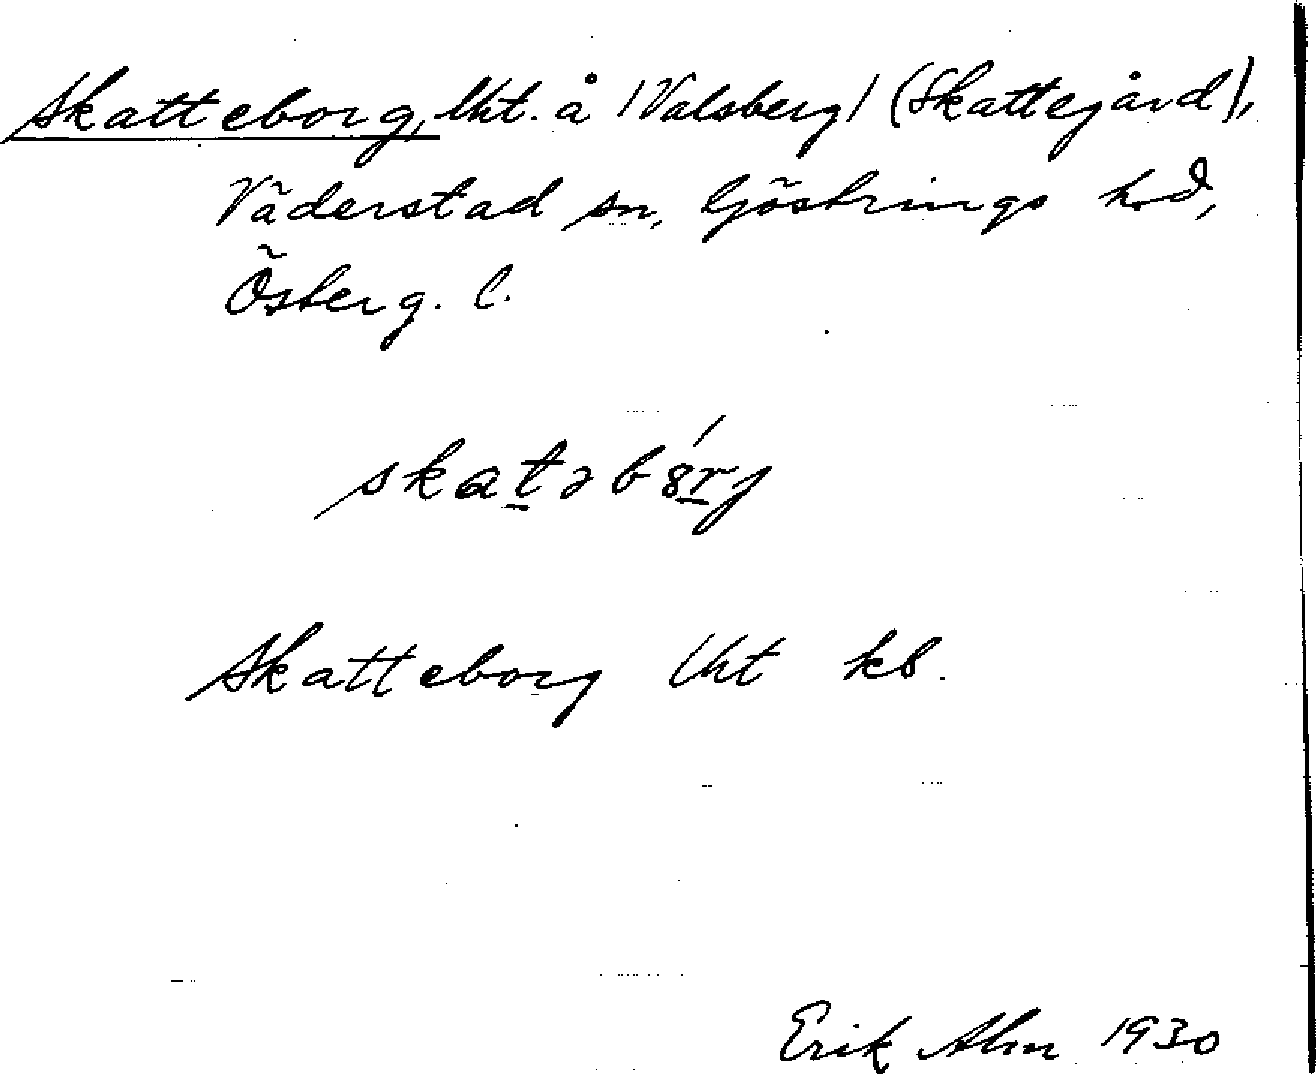 Skatteborg, lht. å /Valsberg/ (Skattegård),
Väderstad sn, Göstrings hd,
Österg. l.
skatəb8rj
Skatteborg lht kb.
Erik Alm 1930